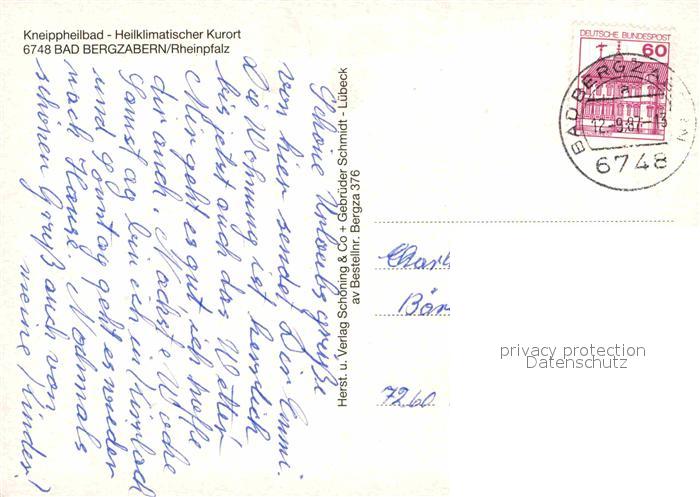 Kneippheilbad - Heilklimatischer Kurort
6748 BAD BERGZABERN/Rheinpfalz
Schöne Urlaubsgrüße
von hier sendet Dir Emmi.
Die Wohnung ist herrlich
bis jetzt auch das Wetter
Mir geht es gut, ich hoffe
dir auch. Nächste Woche
Samstag bin ich in
und Sonntag geht es wieder
nach Hause. Nochmals
schönen Gruß auch von
meine Kinder!
Herst. u. Verlag Schöning & Co + Gebrüder Schmidt - Lübeck
av Bestellnr. Bergza 376
DEUTSCHE BUNDESPOST
60
BAD BERGZA
a
12.-9.87.-13
6748
Bör
7260
privacy protection
Datenschutz